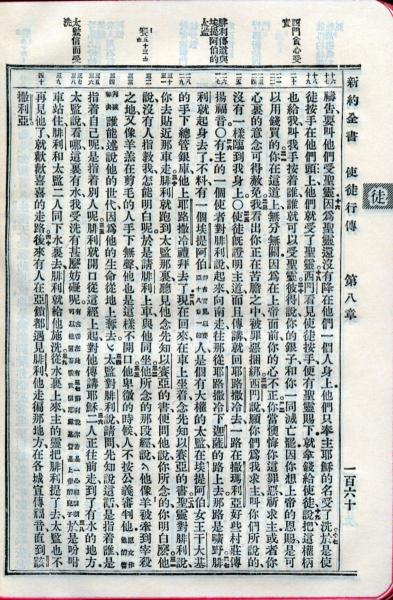 新約全書 使徒行傳 第八章 一百六十
徒
西門貪心受責
禱告要叫他們受聖靈因為聖靈還沒有降在他們一個人身上他們只奉主耶穌的名受了洗於是使
徒按手在他們頭上他們就受了聖靈西門看見使徒按手便有聖靈賜下就拿錢給使徒說把這權柄
也給我叫我手按着誰誰就可以受聖靈彼得說你的銀子和你一同滅亡罷因你想上帝的恩賜是可
以用錢買的你在這道上無分無關因為在上帝面前你的心不正你當懊悔你這罪惡祈求主或者你
心裏的意念可得赦免我看出你正在苦膽之中被罪惡捆綁西門說願你們為我求主叫你們所說的
沒有一樣臨到我身上○使徒既證明主道而且傳講就回耶路撒冷去一路在撒瑪利亞好些村莊傳
腓利傳道與埃提阿伯的太監
揚福音○有主的一個使者對腓利說起來向南走往那從耶路撒冷下迦薩的路上去那路是曠野腓
利就起身去了不料有一個埃提阿伯人是個有大權的太監在埃提阿伯女王干大基
的手下總管銀庫他上耶路撒冷禮拜去了現在回來在車上坐着念先知以賽亞的書聖靈對腓利說
你去貼近那車走腓利就跑到太監那裏聽見他念先知以賽亞的書便問他說你所念的你明白麼他
說沒有人指教我怎能明白呢於是請腓利上車與他同坐他所念的那段經說他像羊被牽到宰殺
之地又像羊羔在剪毛的人手下無聲他也是這樣不開口他卑微的時候人不按公義審判他
誰能述說他的世代因為他的生命從地上奪去太監對腓利說請問先知說這話是指着誰是
指着自己呢是指着別人呢腓利就開口從這經上起對他傳講耶穌二人正往前走到了有水的地方
太監信而受洗
太監說看哪這裏有水我受洗有甚麼妨礙呢於是吩咐
車站住腓利和太監二人同下水裏去腓利就給他施洗從水裏上來主的靈把腓利提了去太監也不
再見他了就歡歡喜喜的走路後來有人在亞鎖都遇見腓利他走遍那地方在各城宣傳福音直到該
撒利亞